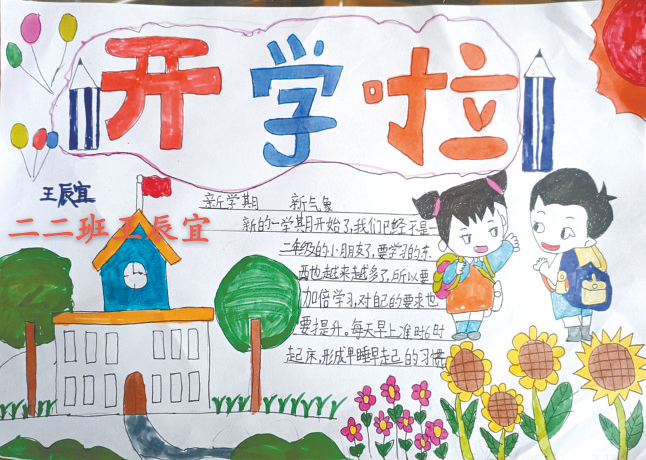 开学啦
王辰宜
二二班王辰宜
新学期 新气象
新的一学期开始了,我们已经不是一
二年级的小朋友了,要学习的东
西也越来越多了,所以要
加倍学习,对自己的要求也
要提升。每天早上准时6时
起床,形成早睡早起的习惯